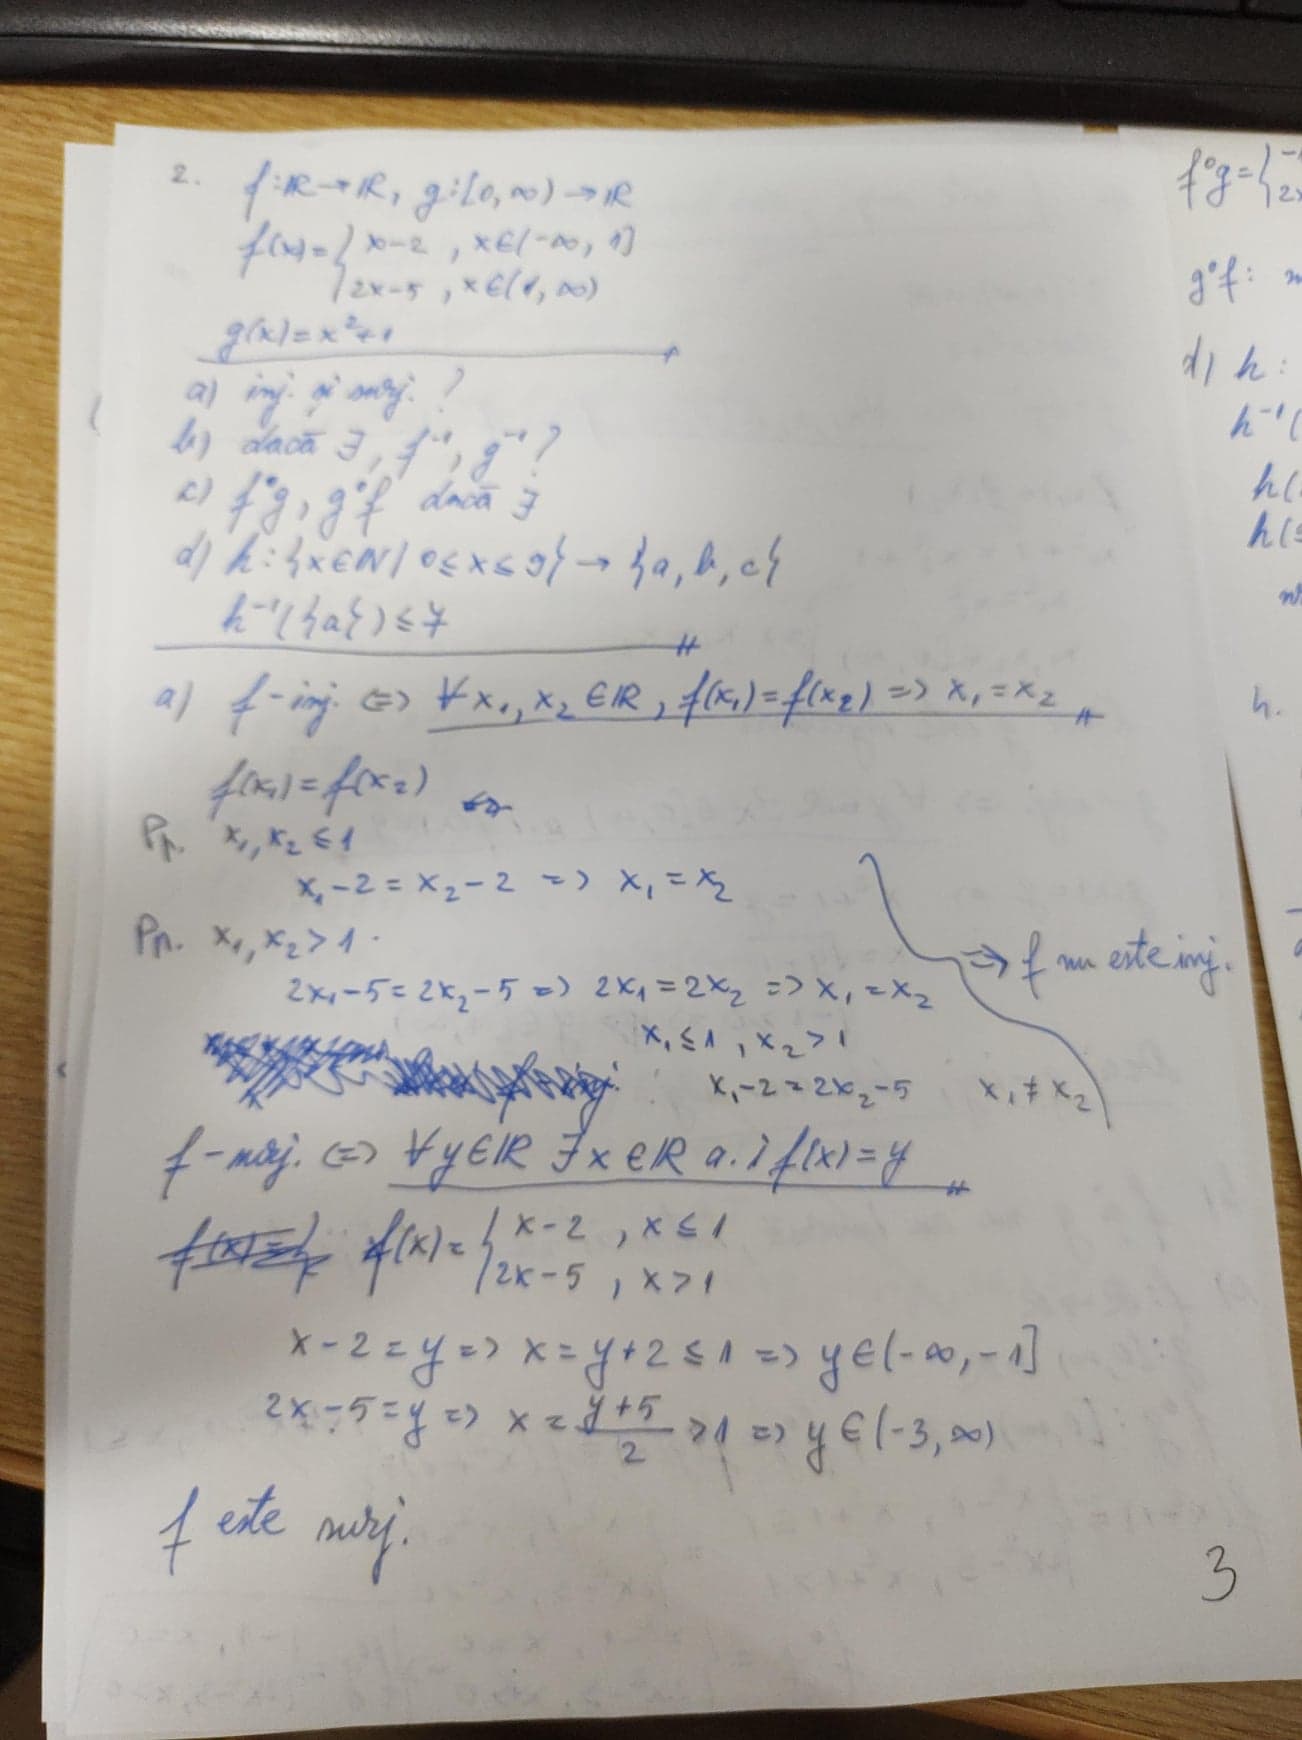 2. f:ℝ→ℝ, g:[0,∞)→ℝ
f(x)={x-2 , x∈(-∞, 1]
2x-5 , x∈(1, ∞)
g(x)=x²+1
a) inj. și surj. ?
b) dacă ∃, f⁻¹, g⁻¹ ?
c) f∘g, g∘f dacă ∃
d) h:{x∈ℕ| 0≤x≤9}→{a, b, c}
h⁻¹({a})≤7
a) f-inj. <=> ∀x₁,x₂∈ℝ, f(x₁)=f(x₂) => x₁=x₂
f(x₁)=f(x₂)
Pp. x₁,x₂≤1
x₁-2=x₂-2 => x₁=x₂
Pp. x₁,x₂>1.
=> f nu este inj.
2x₁-5=2x₂-5 => 2x₁=2x₂ => x₁=x₂
x₁≤1, x₂>1
x₁-2=2x₂-5 x₁≠x₂
f-surj. <=> ∀y∈ℝ ∃x∈ℝ a.î f(x)=y
f(x)={x-2 , x≤1
2x-5 , x>1
x-2=y => x=y+2≤1 => y∈(-∞,-1]
2x-5=y => x=(y+5)/2>1 => y∈(-3,∞)
f este surj.
3
f∘g={
g∘f:
d) h:
h⁻¹(
h(
h(
h.